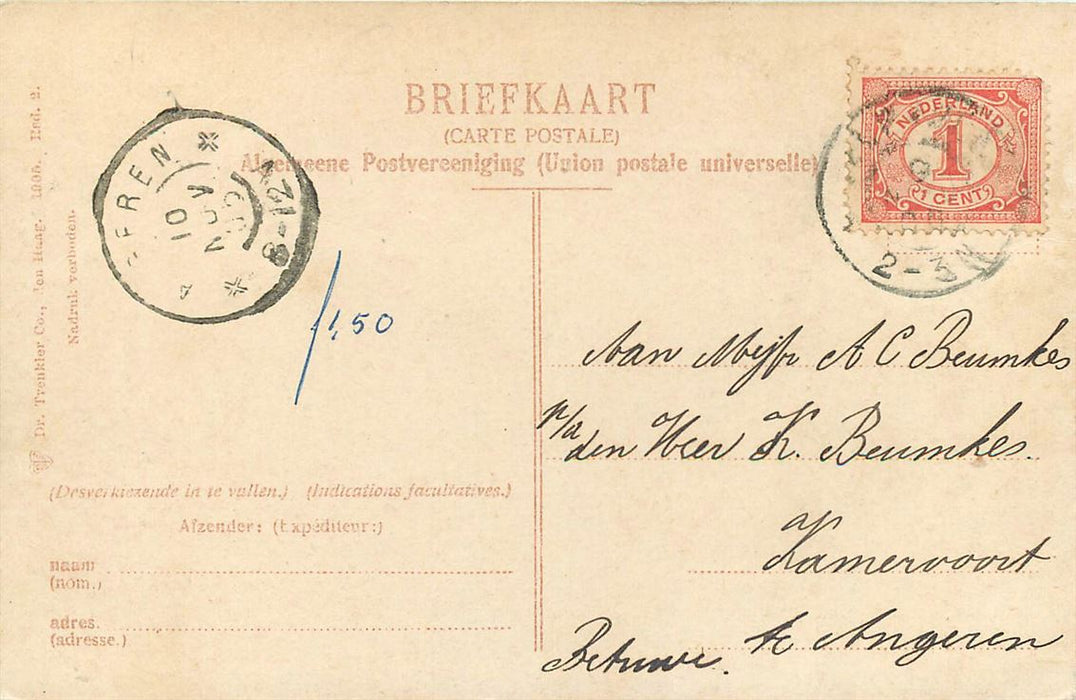 BRIEFKAART
(CARTE POSTALE)
Algemeene Postvereeniging (Union postale universelle)
NEDERLAND
1
1 CENT
2-3N
10 NOV
8-12V
Dr. Trenkler Co., Den Haag. 1905. Esd. 2.
Nadruk verboden.
1,50
Aan Mejfr A C Beumkes
p/a den Heer K. Beumkes.
Kamervoort
te Angeren
Betuwe.
(Desverkiezende in te vullen.) (Indications facultatives.)
Afzender: (Expéditeur:)
naam
(nom.)
adres.
(adresse.)